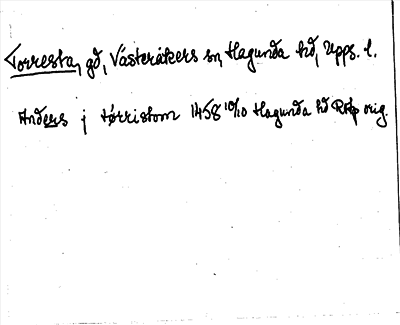 Torresta, gd, Västeråkers sn, Hagunda hd, Upps. l.
Anders j tørristom 1458 10/10 Hagunda hd RAp orig.